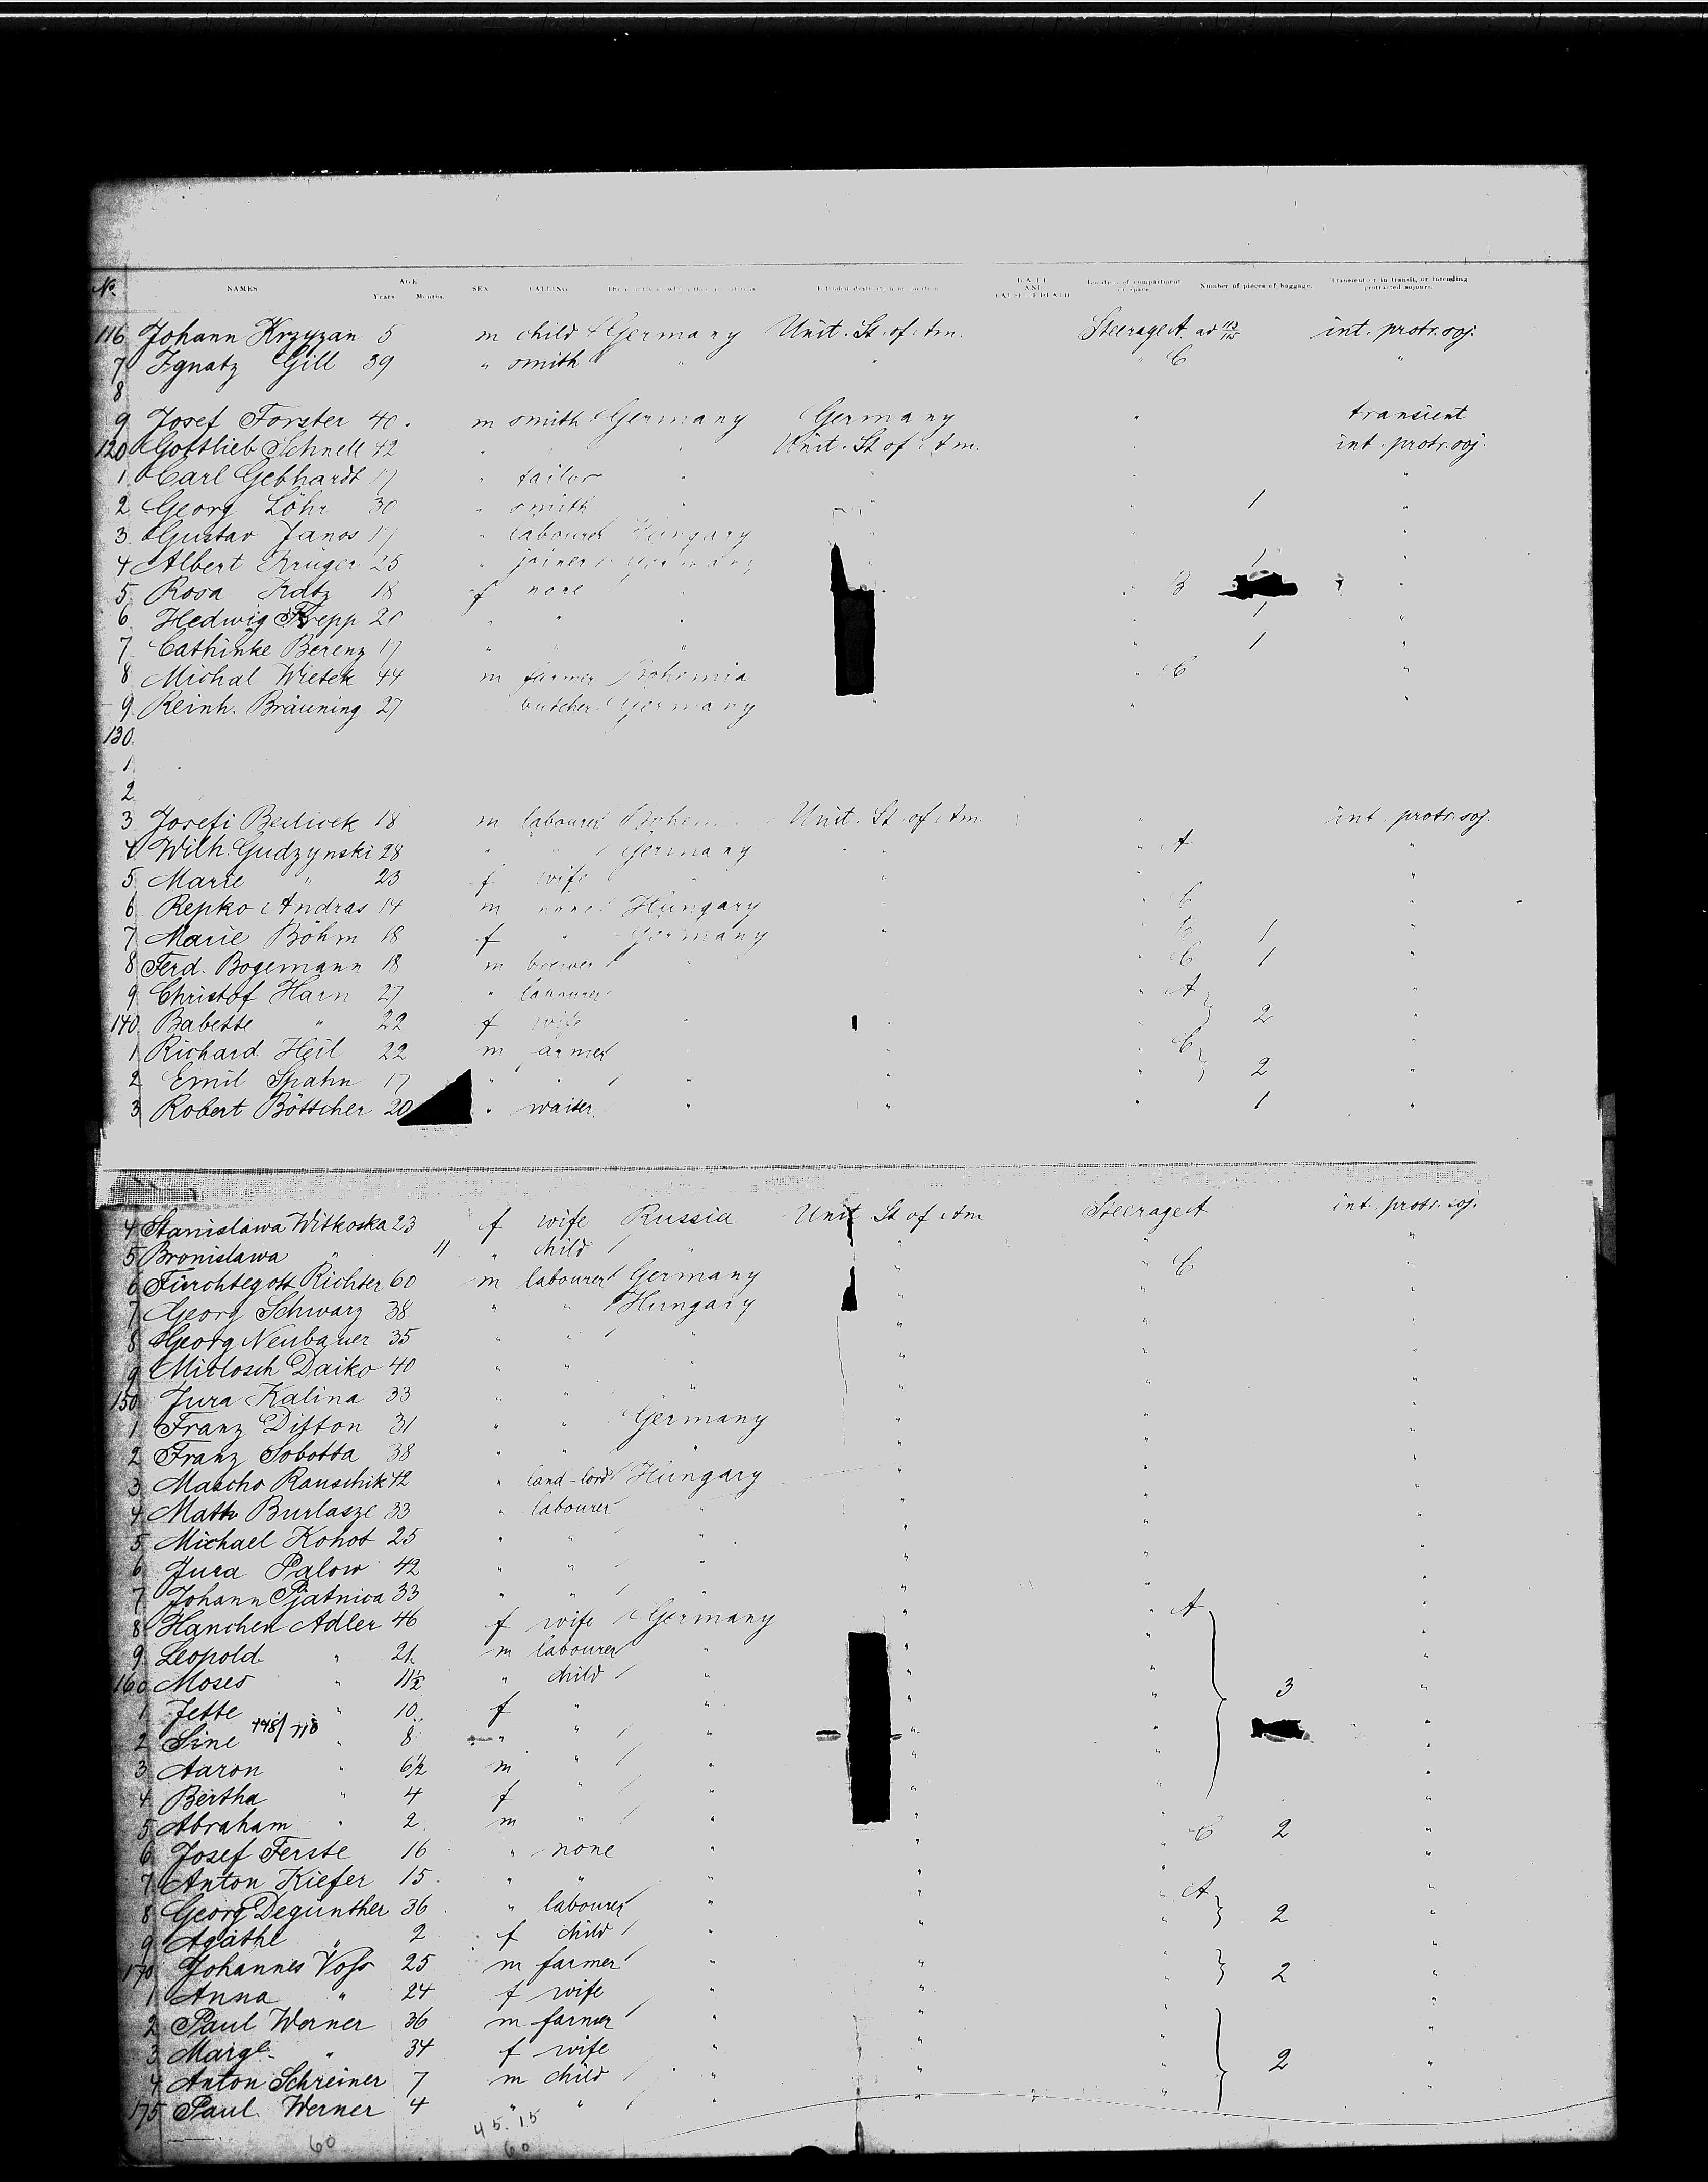 No. NAMES AGE Years Months. SEX CALLING DATE AND CAUSE OF DEATH Location of compartment Number of pieces of baggage. Transient or in transit, or intending protracted sojourn.
116 Johann Krzyzan 5 m child Germany Unit. St. of Am. Steerage A ad 113/115 int. protr. soj.
7 Ignatz Gill 39 " smith " " " C "
8
9 Josef Forster 40. m smith Germany Germany " transient
120 Gottlieb Schnell 42 " " " Unit. St of Am. int. protr. soj.
1 Carl Gebhardt 17 " tailor " " " "
2 Georg Löhr 30 " smith " " 1 "
3 Gustav Janos 17 " labourer Hungary " "
4 Albert Krüger 25 " joiner Germany " 1 "
5 Rosa Katz 18 f none " " B "
6 Hedwig Trepp 20 " " " 1 "
7 Cathinke Berenz 17 " " " " 1 "
8 Michal Wietek 44 m farmer Bohemia " C "
9 Reinh. Bräuning 27 butcher Germany " " "
130
1
2
3 Josefi Bedicek 18 m labourer Unit. St. of Am. " int. protr. soj.
4 Wilh. Gudzynski 28 " " Germany " " A "
5 Marie " 23 f wife " " "
6 Repko Andras 14 m none Hungary " " C "
7 Marie Böhm 18 f " Germany " " B 1 "
8 Ferd. Bogemann 18 m brewer " " C 1 "
9 Christof Harn 27 " labourer " A "
140 Babette " 22 f wife " " " 2 "
1 Richard Heil 22 m " " " C "
2 Emil Spahn 17 " " " " " 2 "
3 Robert Böttcher 20 " waiter " " " 1 "
4 Stanislawa Witkoska 23 f wife Russia Unit St of Am Steerage A int. protr. soj.
5 Bronislawa " 11 " child " " " "
6 Fürchtegott Richter 60 m labourer Germany " " C "
7 Georg Schwarz 38 " " Hungary " " "
8 Georg Neubauer 35 " " " " " "
9 Mitlosch Daiko 40 " " " " " "
150 Jura Kalina 33 " " " " " "
1 Franz Ditton 31 " " Germany " " "
2 Franz Sobotta 38 " " " " " "
3 Mascho Rauschik 42 " land-lord Hungary " " "
4 Math Burlasze 33 " labourer " " " "
5 Michael Kohot 25 " " " " " "
6 Jura Palow 42 " " " " " "
7 Johann Pjatniva 33 " " " " " "
8 Hanchen Adler 46 f wife Germany " " A "
9 Leopold " 21 m labourer " " " "
160 Moses " 11½ " child " " " 3 "
1 Jette " 10 f " " " " "
2 Sine " 8 " " " " " "
3 Aaron " 6½ m " " " " "
4 Bertha " 4 f " " " " "
5 Abraham " 2 m " " " " "
6 Josef Ferste 16 " none " " " C 2 "
7 Anton Kiefer 15 " " " " " "
8 Georg Degünther 36 " labourer " " " A "
9 Agathe " 2 f child " " " 2 "
170 Johannes Voss 25 m farmer " " " "
1 Anna " 24 f wife " " " 2 "
2 Paul Werner 36 m farmer " " " "
3 Marg. " 34 f wife " " " "
4 Anton Schreiner 7 m child " " " 2 "
175 Paul Werner 4 " " " " " "
60 45.15
60